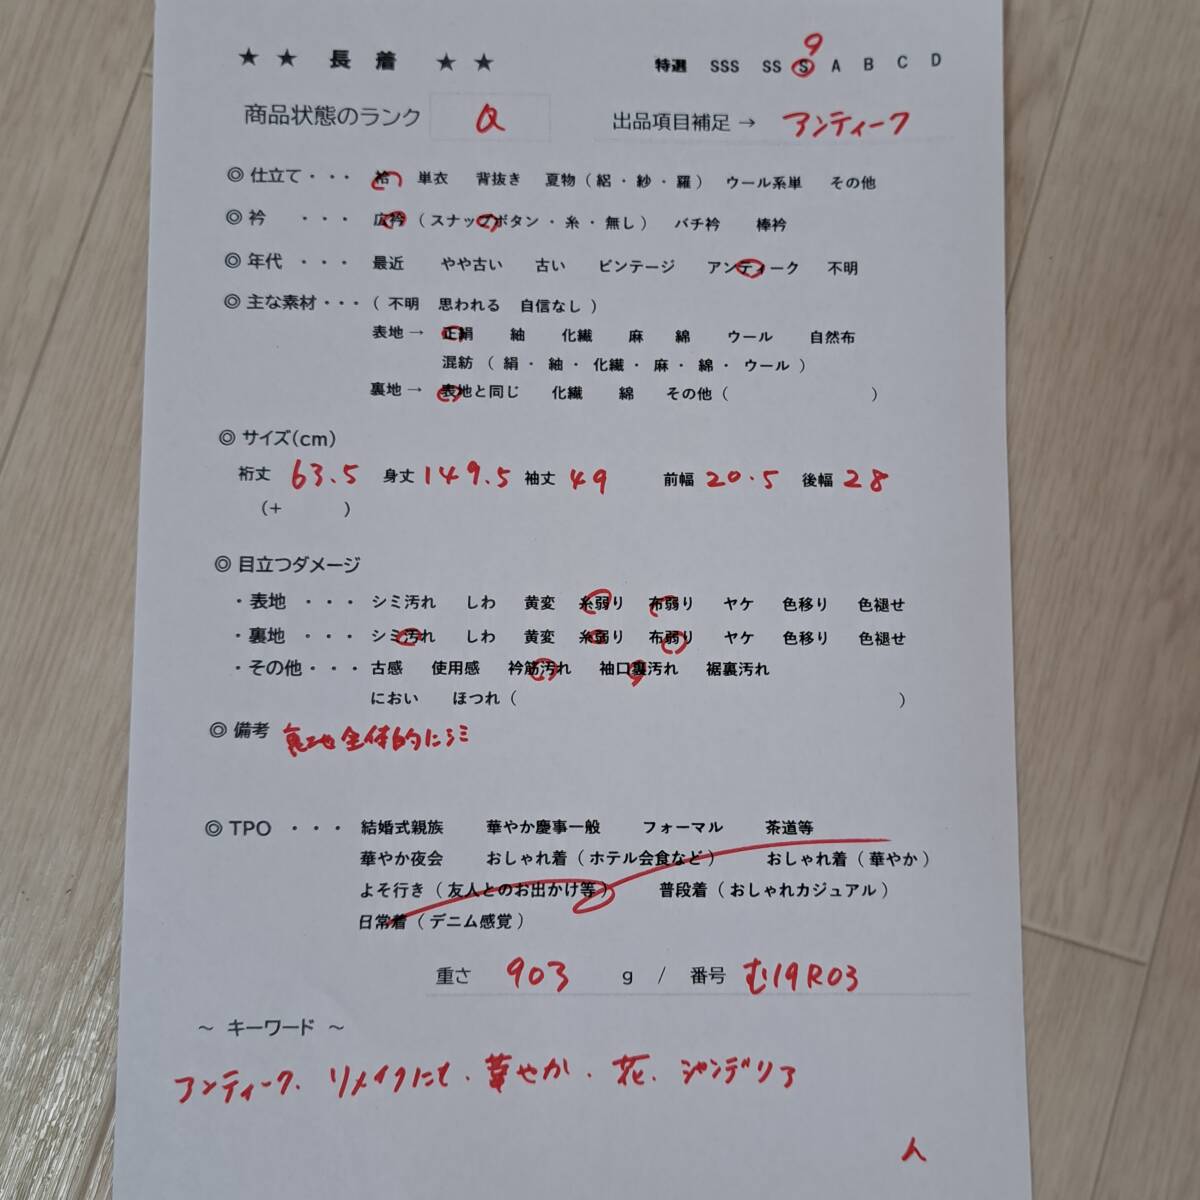 ★ ★ 長 着 ★ ★ 特選 SSS SS S A B C D
9
商品状態のランク Q 出品項目補足 → アンティーク
◎ 仕立て ・・・ 袷 単衣 背抜き 夏物 ( 絽 ・ 紗 ・ 羅 ) ウール系単 その他
◎ 衿 ・・・ 広衿 ( スナップボタン ・ 糸 ・ 無し ) バチ衿 棒衿
◎ 年代 ・・・ 最近 やや古い 古い ビンテージ アンティーク 不明
◎ 主な素材 ・・・ ( 不明 思われる 自信なし )
表地 → 正絹 紬 化繊 麻 綿 ウール 自然布
混紡 ( 絹 ・ 紬 ・ 化繊 ・ 麻 ・ 綿 ・ ウール )
裏地 → 表地と同じ 化繊 綿 その他 ( )
◎ サイズ(cm)
裄丈 63.5 身丈 149.5 袖丈 49 前幅 20.5 後幅 28
(+ )
◎ 目立つダメージ
・ 表地 ・・・ シミ汚れ しわ 黄変 糸弱り 布弱り ヤケ 色移り 色褪せ
・ 裏地 ・・・ シミ汚れ しわ 黄変 糸弱り 布弱り ヤケ 色移り 色褪せ
・ その他 ・・・ 古感 使用感 衿筋汚れ 袖口裏汚れ 裾裏汚れ
におい ほつれ ( )
◎ 備考 裏地全体的にシミ
◎ TPO ・・・ 結婚式親族 華やか慶事一般 フォーマル 茶道等
華やか夜会 おしゃれ着 ( ホテル会食など ) おしゃれ着 ( 華やか )
よそ行き ( 友人とのお出かけ等 ) 普段着 ( おしゃれカジュアル )
日常着 ( デニム感覚 )
重さ 903 g / 番号 む19R03
～ キーワード ～
アンティーク、リメイクにも・華やか・花、シャンデリア